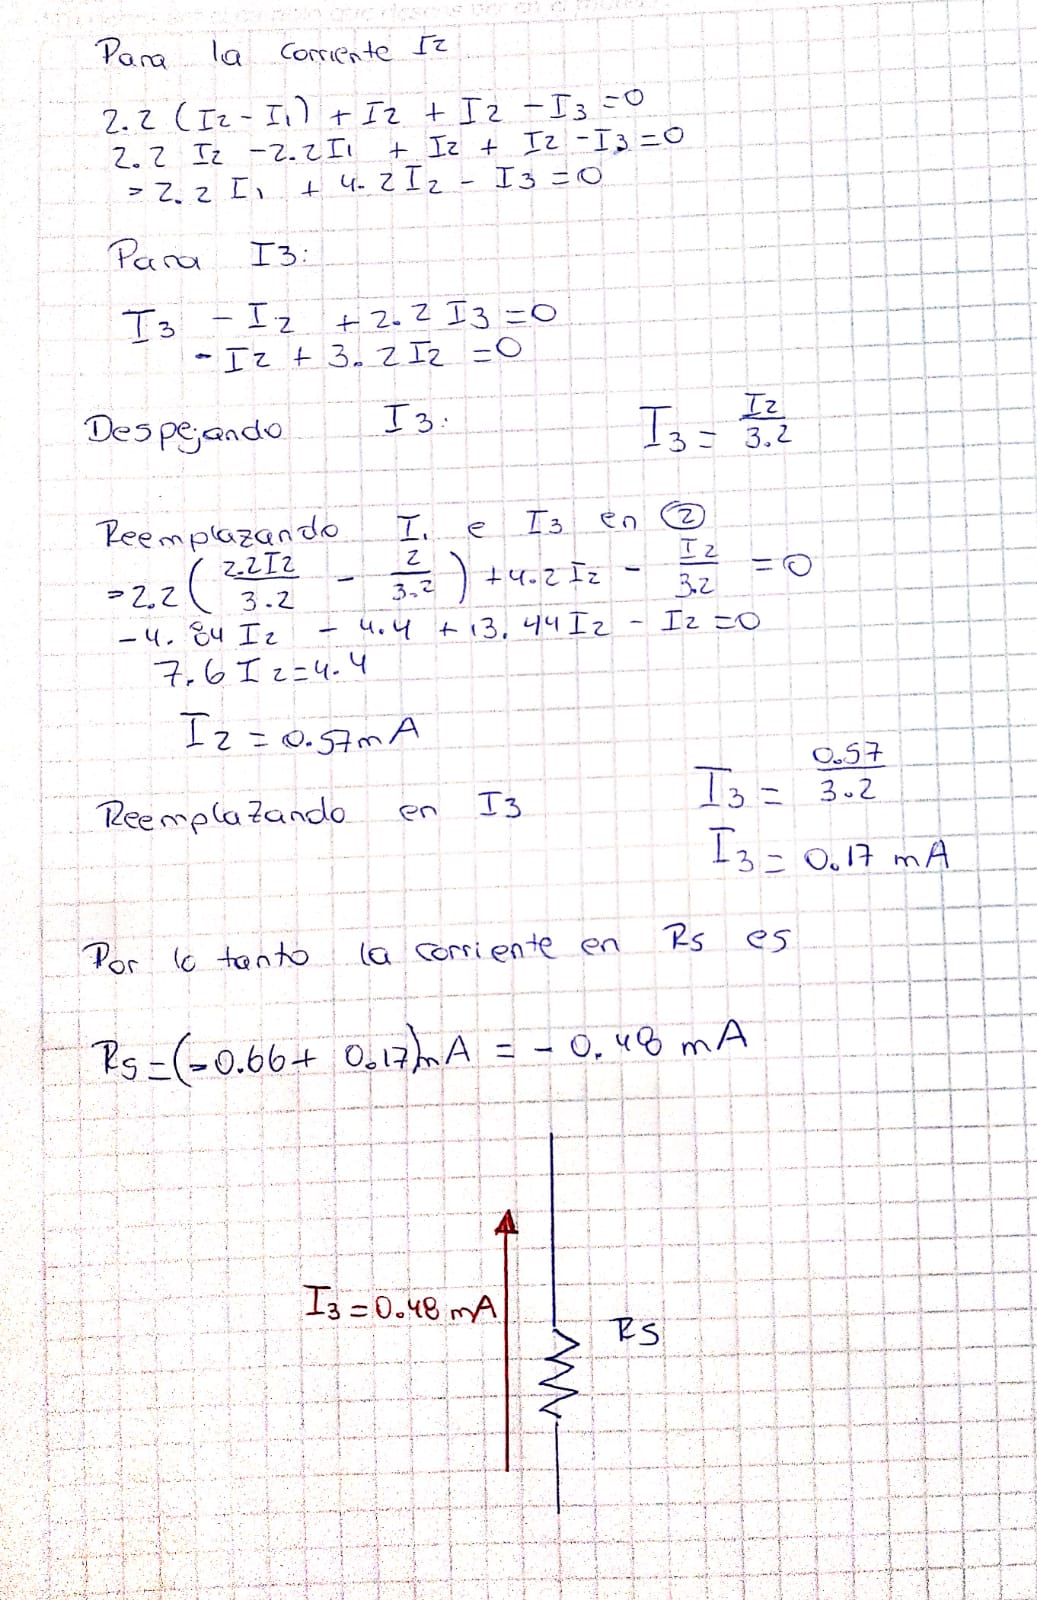 Para la corriente I2
2.2 (I2 - I1) + I2 + I2 - I3 = 0
2.2 I2 - 2.2 I1 + I2 + I2 - I3 = 0
- 2.2 I1 + 4.2 I2 - I3 = 0
Para I3:
I3 - I2 + 2.2 I3 = 0
- I2 + 3.2 I2 = 0
Despejando I3: I3 = I2/3.2
Reemplazando I1 e I3 en ②
-2.2 (2.2I2/3.2 - 2/3.2) + 4.2 I2 - I2/3.2 = 0
-4.84 I2 - 4.4 + 13.44 I2 - I2 = 0
7.6 I2 = 4.4
I2 = 0.57 mA
Reemplazando en I3 I3 = 0.57/3.2
I3 = 0.17 mA
Por lo tanto la corriente en R5 es
R5 = (-0.66 + 0.17) mA = - 0.48 mA
I3 = 0.48 mA
R5